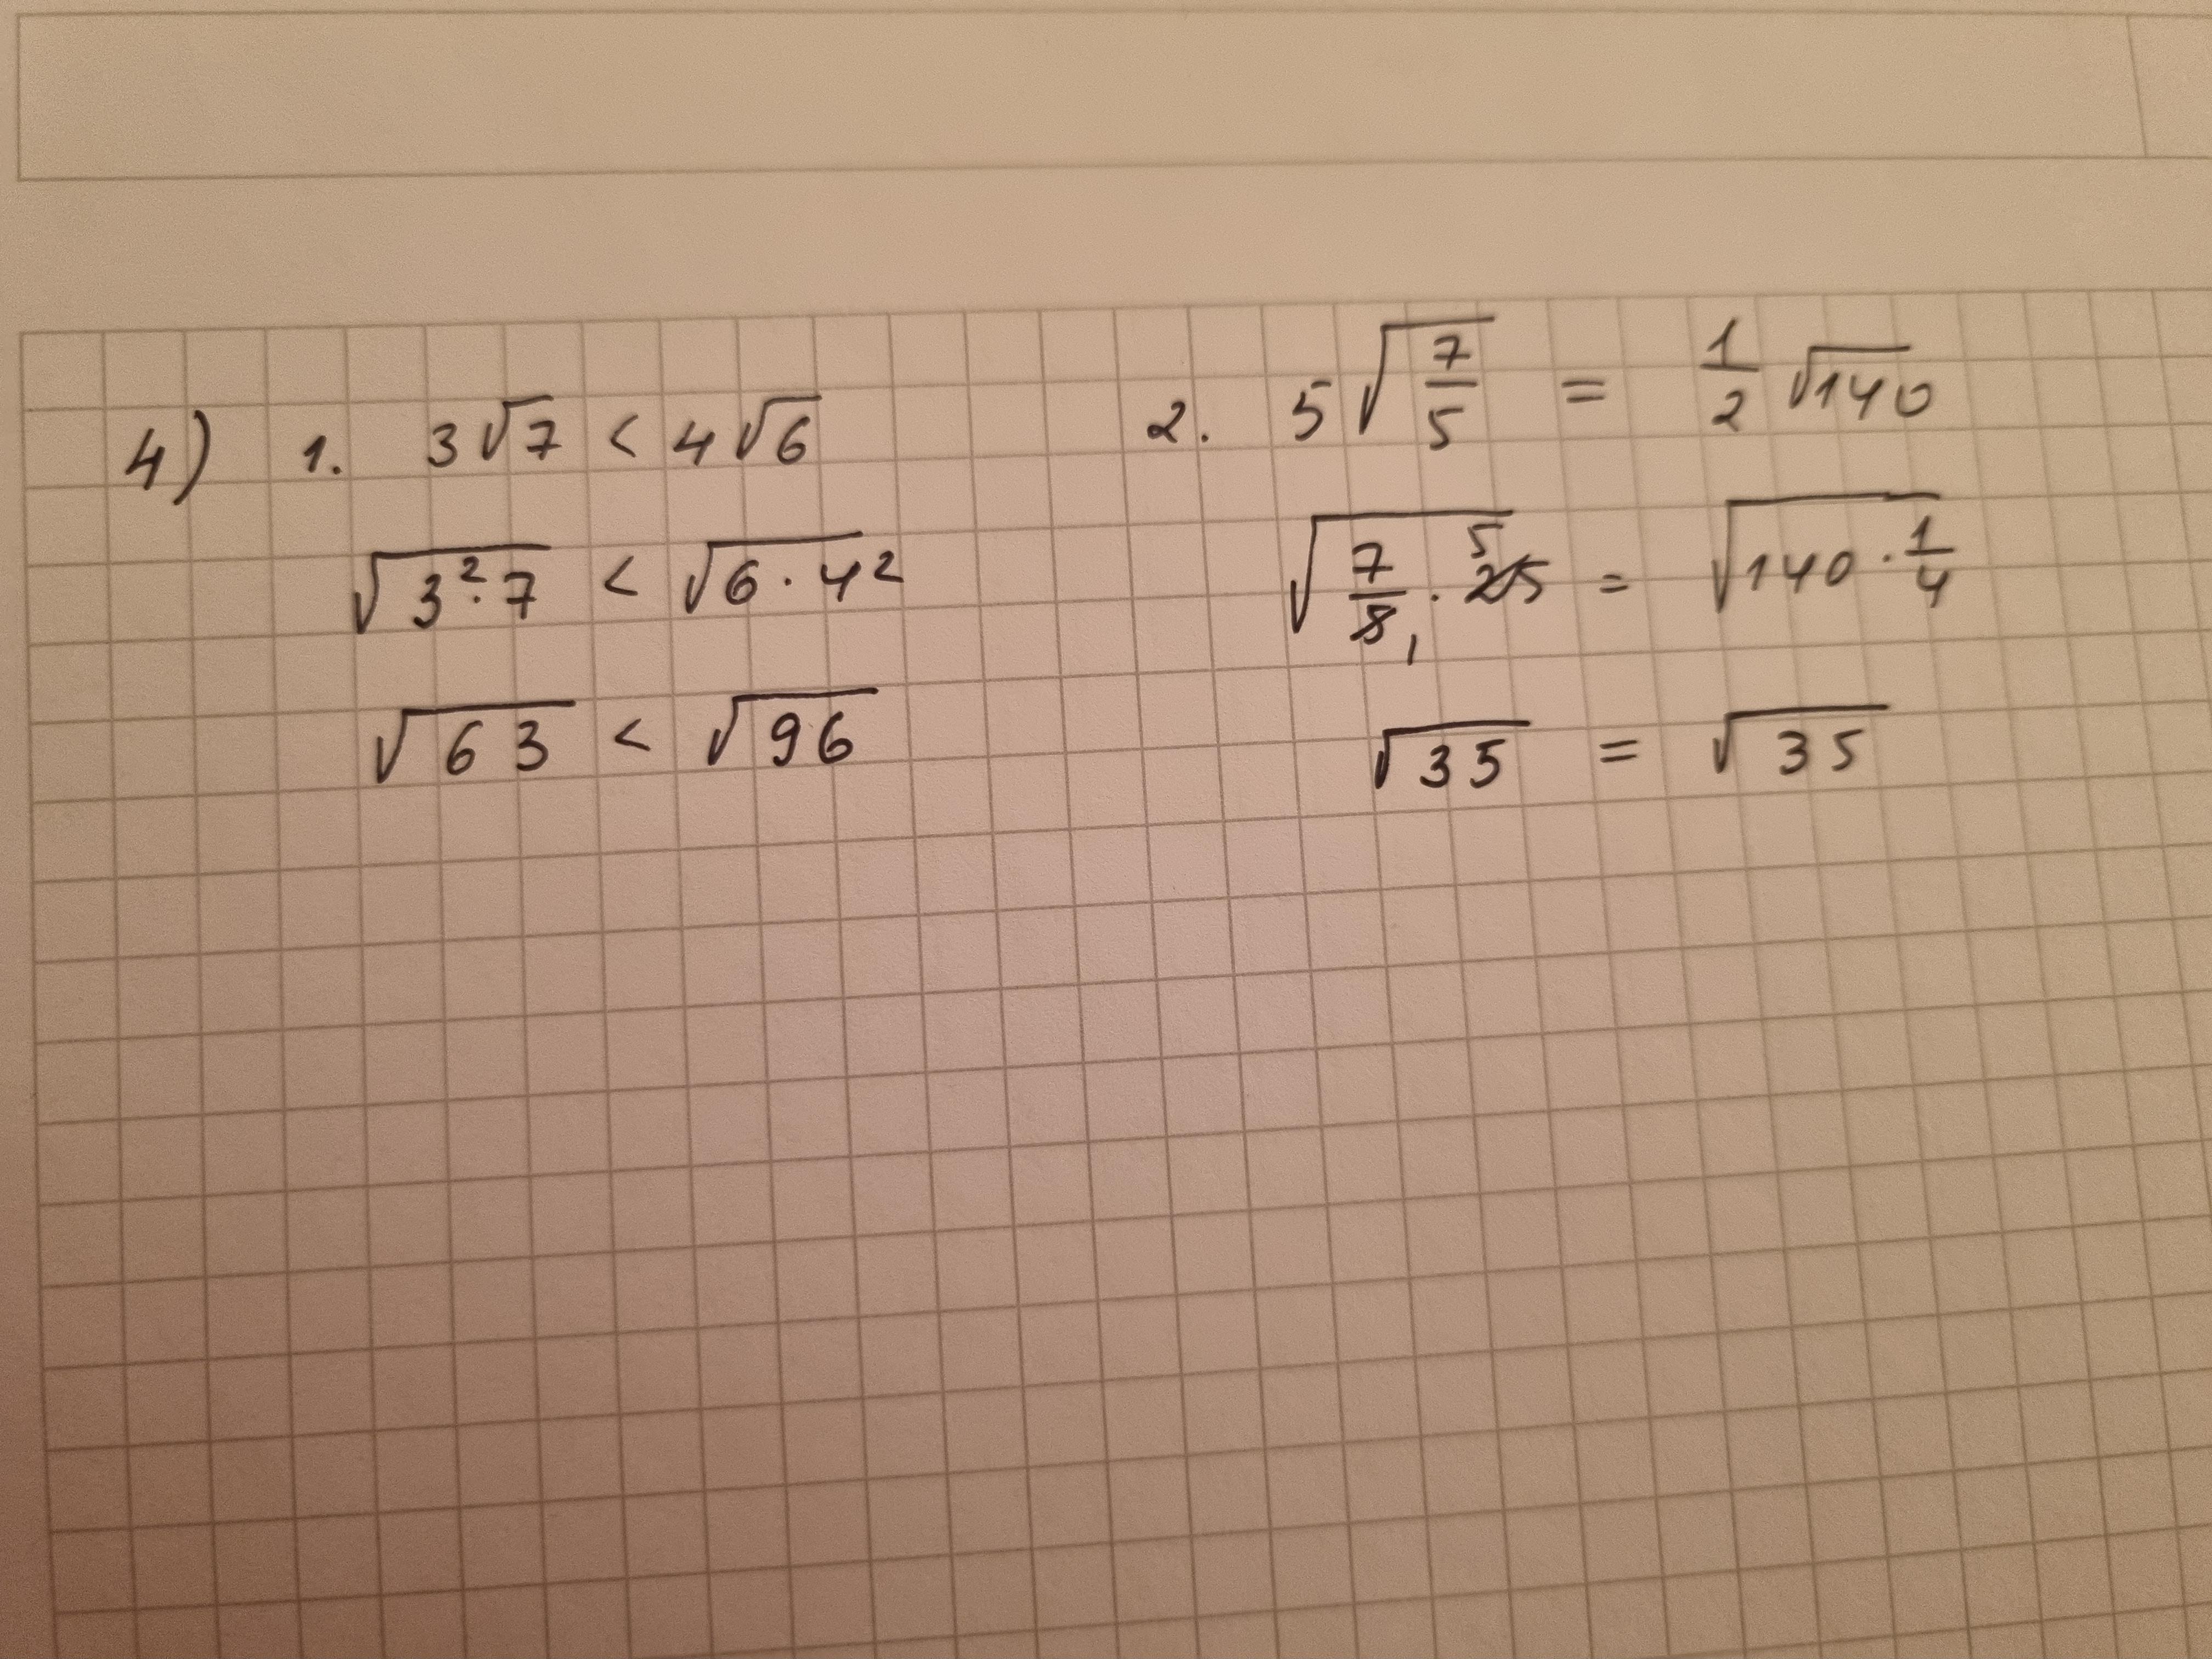 4) 1. 3√7 < 4√6
√(3²·7) < √(6·4²)
√63 < √96
2. 5√(7/5) = 1/2 √140
√(7/5₁ · 25⁵) = √(140 · 1/4)
√35 = √35